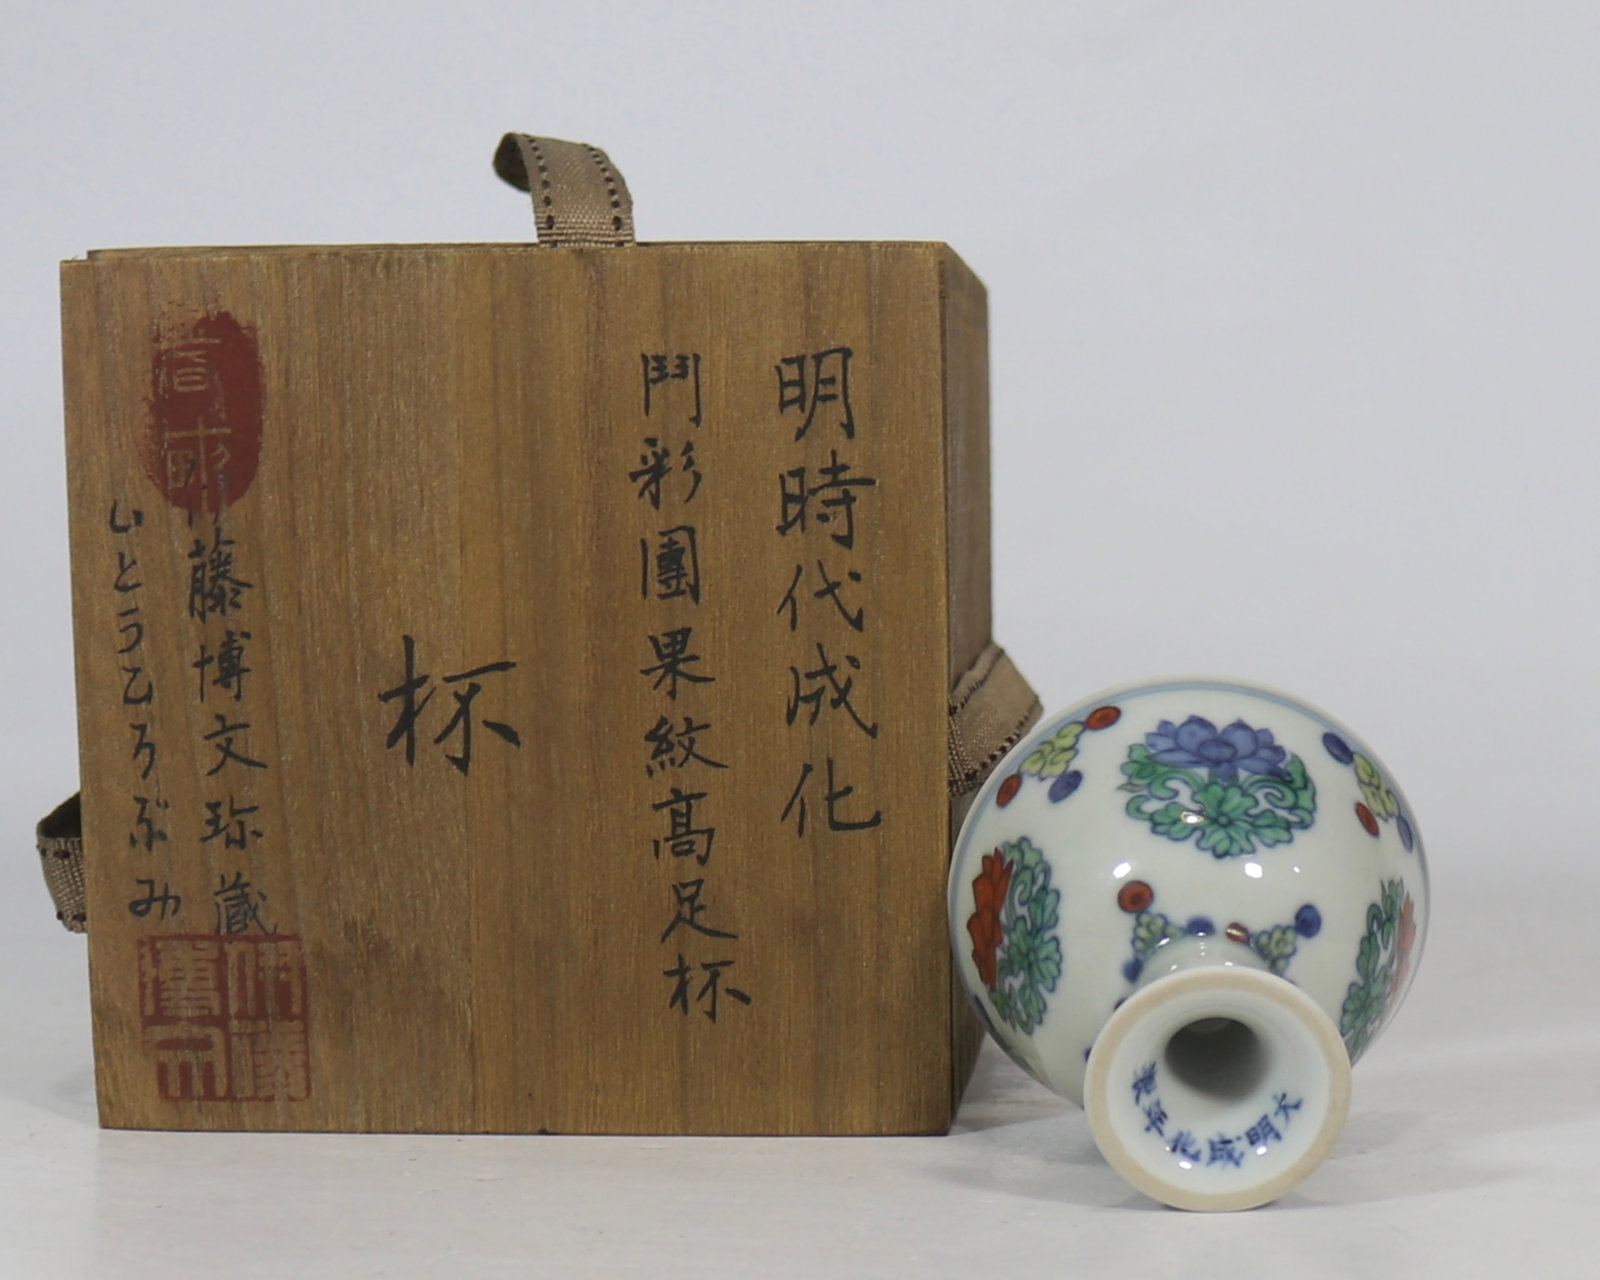 明時代成化
鬥彩團果紋高足杯
杯
藤博文珎蔵
いとうひろぶみ
伊藤
博文
大明成化年製